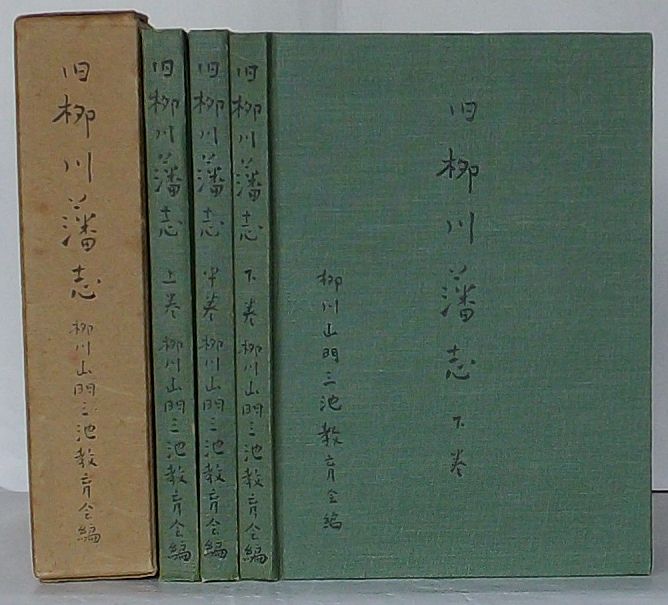 旧柳川藩志 柳川山門三池教育会編
旧柳川藩志 上巻 柳川山門三池教育会編
旧柳川藩志 中巻 柳川山門三池教育会編
旧柳川藩志 下巻 柳川山門三池教育会編
旧柳川藩志 下巻
柳川山門三池教育会編